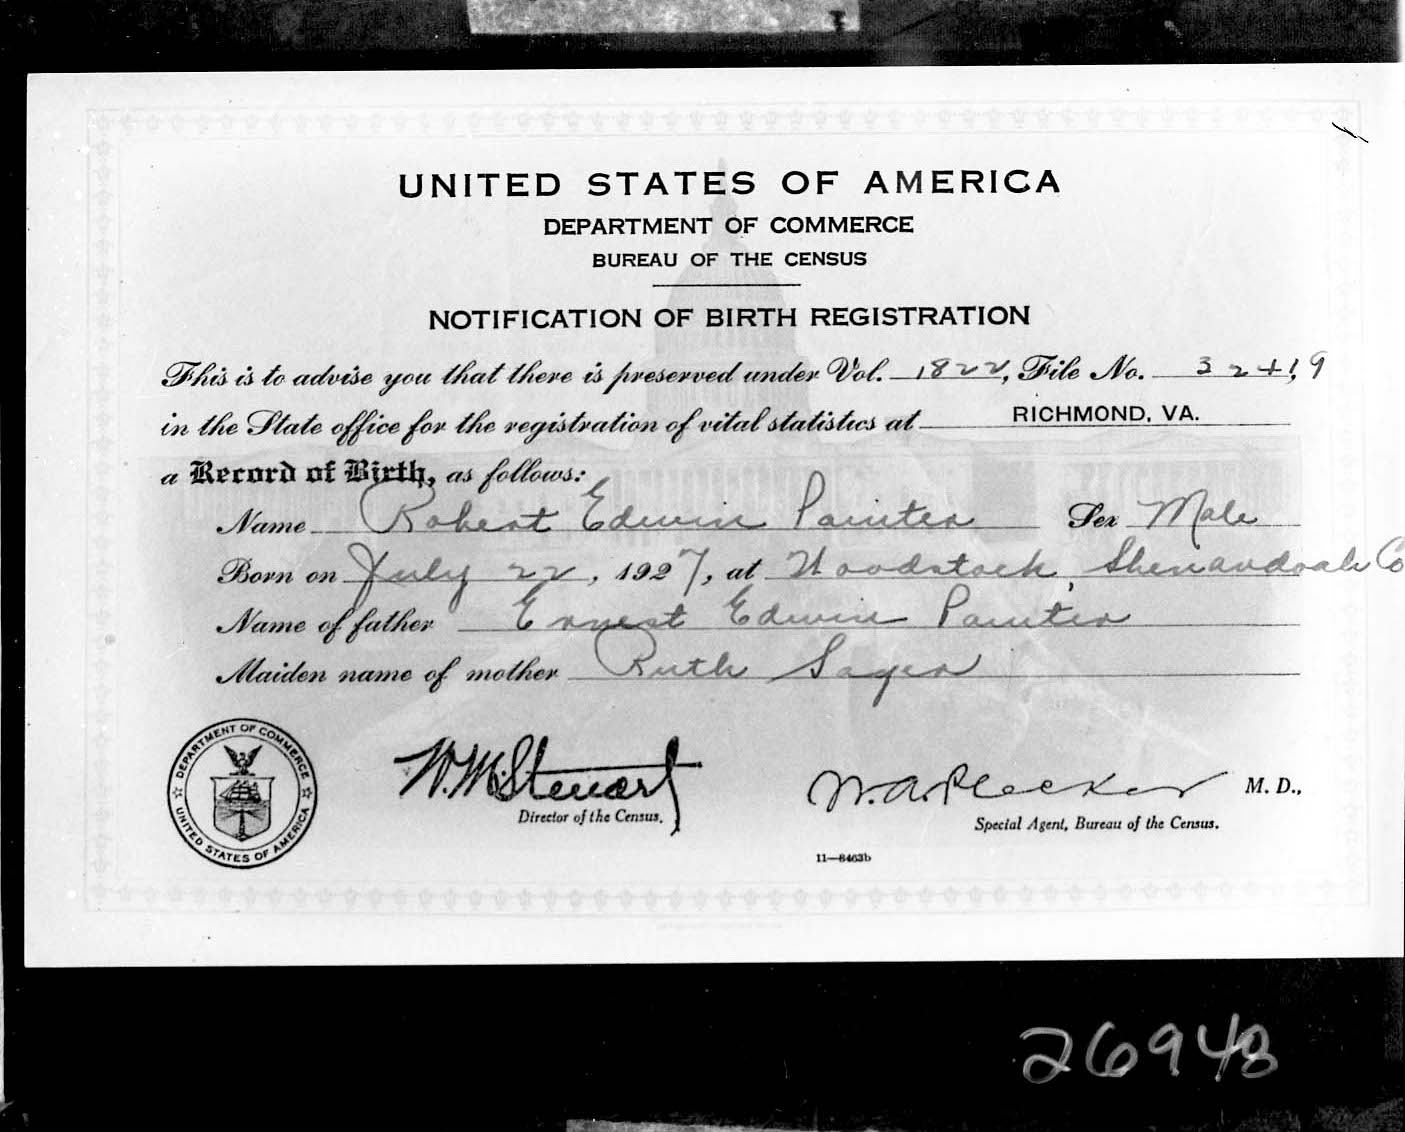 UNITED STATES OF AMERICA
DEPARTMENT OF COMMERCE
BUREAU OF THE CENSUS
NOTIFICATION OF BIRTH REGISTRATION
This is to advise you that there is preserved under Vol. 1822, File No. 32419
in the State office for the registration of vital statistics at RICHMOND, VA.
a Record of Birth, as follows:
Name Robert Edwin Painter Sex Male
Born on July 22, 1927, at Woodstock, Shenandoah Co
Name of father Ernest Edwin Painter
Maiden name of mother Ruth Sager
DEPARTMENT OF COMMERCE
UNITED STATES OF AMERICA
W. M. Steuart
Director of the Census.
W. A. Plecker M. D.,
Special Agent, Bureau of the Census.
11—8463b
26948